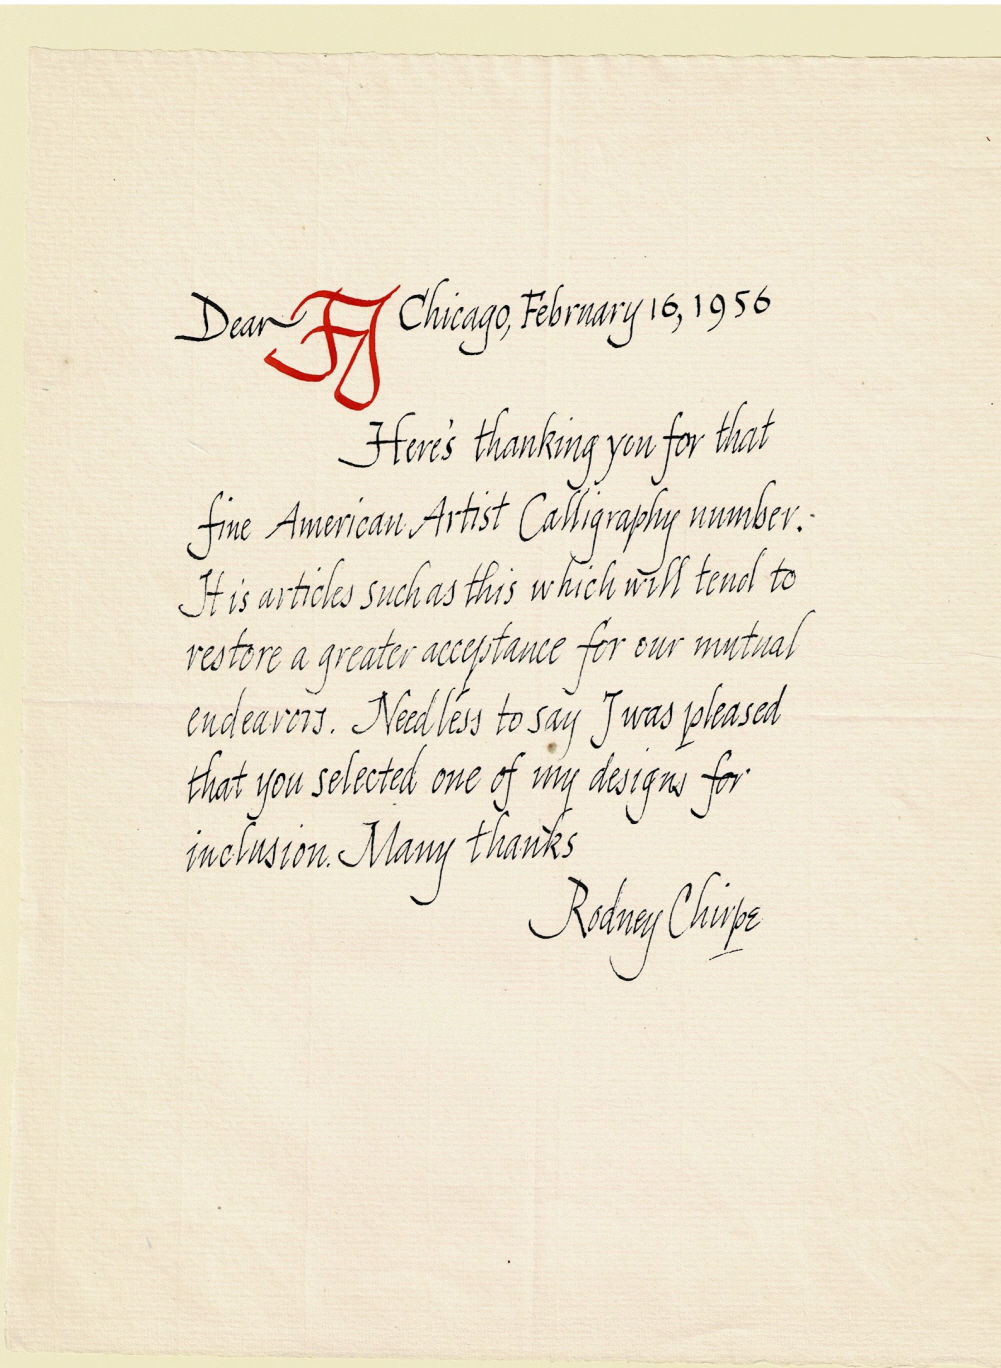 Dear FJ Chicago, February 16, 1956
Here's thanking you for that
fine American Artist Calligraphy number.-
It is articles such as this which will tend to
restore a greater acceptance for our mutual
endeavors. Needless to say I was pleased
that you selected one of my designs for
inclusion. Many thanks
Rodney Chirpe